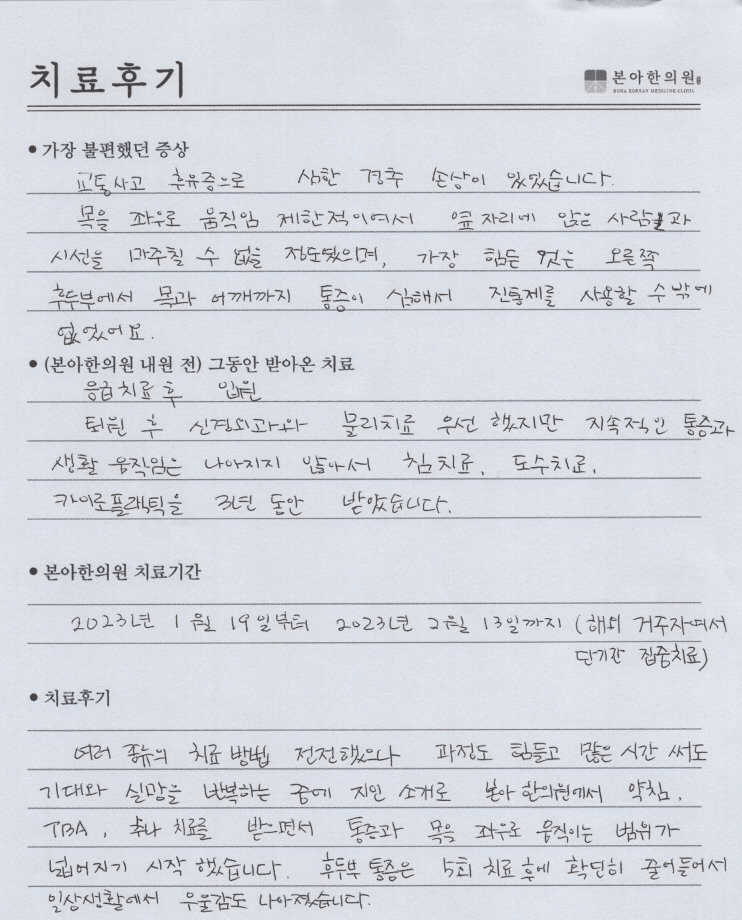 치료후기
본아한의원
BONA KOREAN MEDICINE CLINIC
• 가장 불편했던 증상
교통사고 후유증으로 심한 경추 손상이 있었습니다.
목을 좌우로 움직임 제한적이여서 옆자리에 앉은 사람과
시선을 마주칠 수 없을 정도였으며, 가장 힘든 것은 오른쪽
후두부에서 목과 어깨까지 통증이 심해서 진통제를 사용할 수 밖에
없었어요.
• (본아한의원 내원 전) 그동안 받아온 치료
응급치료 후 입원
퇴원 후 신경외과와 물리치료 우선 했지만 지속적인 통증과
생활 움직임은 나아지지 않아서 침치료, 도수치료,
카이로프랙틱을 3년 동안 받았습니다.
• 본아한의원 치료기간
2023년 1월 19일부터 2023년 2월 13일까지 (해외 거주자여서
단기간 집중치료)
• 치료후기
여러 종류의 치료 방법 전전했으나 과정도 힘들고 많은 시간 써도
기대와 실망을 반복하는 중에 지인 소개로 본아한의원에서 약침,
TBA, 추나 치료를 받으면서 통증과 목을 좌우로 움직이는 범위가
넓어지기 시작 했습니다. 후두부 통증은 5회 치료 후에 확연히 줄어들어서
일상생활에서 우울감도 나아졌습니다.